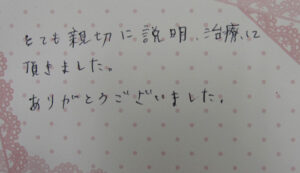 とても親切に説明、治療して
頂きました。
ありがとうございました。